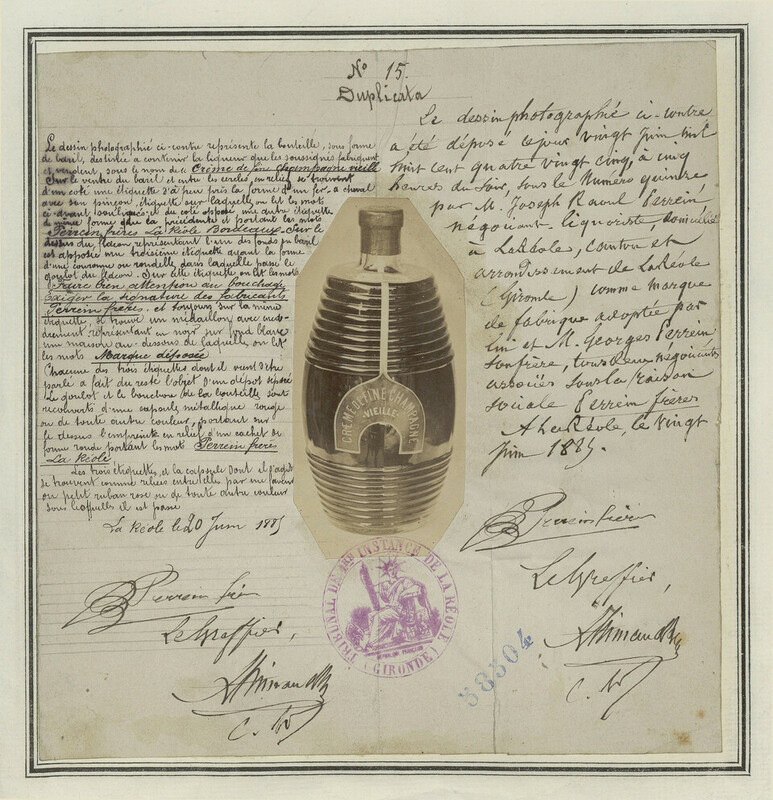 No 15.
Duplicata
Le dessin photographié ci-contre représente la bouteille, sous forme
de baril, destinée à contenir la liqueur que les soussignés fabriquent
et vendent, sous le nom de Crème de fine champagne vieille
Sur le ventre du baril et entre les cercles, en relief se trouvent
d'un coté une étiquette d'à peu près la forme d'un fer à cheval
avec son pinçon, étiquette sur laquelle on lit les mots
ci-devant soulignés et du coté opposé une autre étiquette
de même forme que la précédente et portant les mots
Perrein frères La Réole Bordeaux. Sur le
dessus du flacon, représentant l'un des fonds du baril
est apposée une troisième étiquette ayant la forme
d'une couronne ou rondelle dans laquelle passe le
goulot du flacon. Sur cette étiquette on lit les mots
Faire bien attention au bouchage
Exiger la signature des fabricants
Perrein frères. et toujours sur la même
étiquette, se trouve un médaillon avec
représentant en noir sur fond blanc
une maison au-dessous de laquelle on lit
les mots Marque déposée
Chacune des trois étiquettes dont il vient d'être
parlé a fait du reste l'objet d'un dépôt séparé
Le goulot et le bouchon de la bouteille sont
recouverts d'une capsule métallique rouge
ou de toute autre couleur, portant sur
le dessus l'empreinte en relief d'un cachet de
forme ronde portant les mots Perrein frères
La Réole
Les trois étiquettes, et la capsule dont il s'agit
se trouvent comme reliées entr'elles par une faveur
ou petit ruban rose ou de toute autre couleur
sous lesquelles il est passé
La Réole le 20 Juin 1885
Perrein frères
Le Greffier,
Le dessin photographié ci-contre
a été déposé ce jour vingt Juin mil
huit cent quatre vingt cinq, à cinq
heures du soir, sous le Numéro quinze
par M. Joseph Raoul Perrein,
négociant-liquoriste, domicilié
à LaRéole, canton et
arrondissement de LaRéole
(Gironde) comme marque
de fabrique adoptée par
lui et M. Georges Perrein
son frère, tous deux négociants
associés sous la raison
sociale Perrein frères
A LaRéole, le vingt
Juin 1885.
Perrein frères
Le Greffier,
CRÈME DE FINE CHAMPAGNE
VIEILLE
TRIBUNAL DE 1ERE INSTANCE DE LA RÉOLE
(GIRONDE)
38304